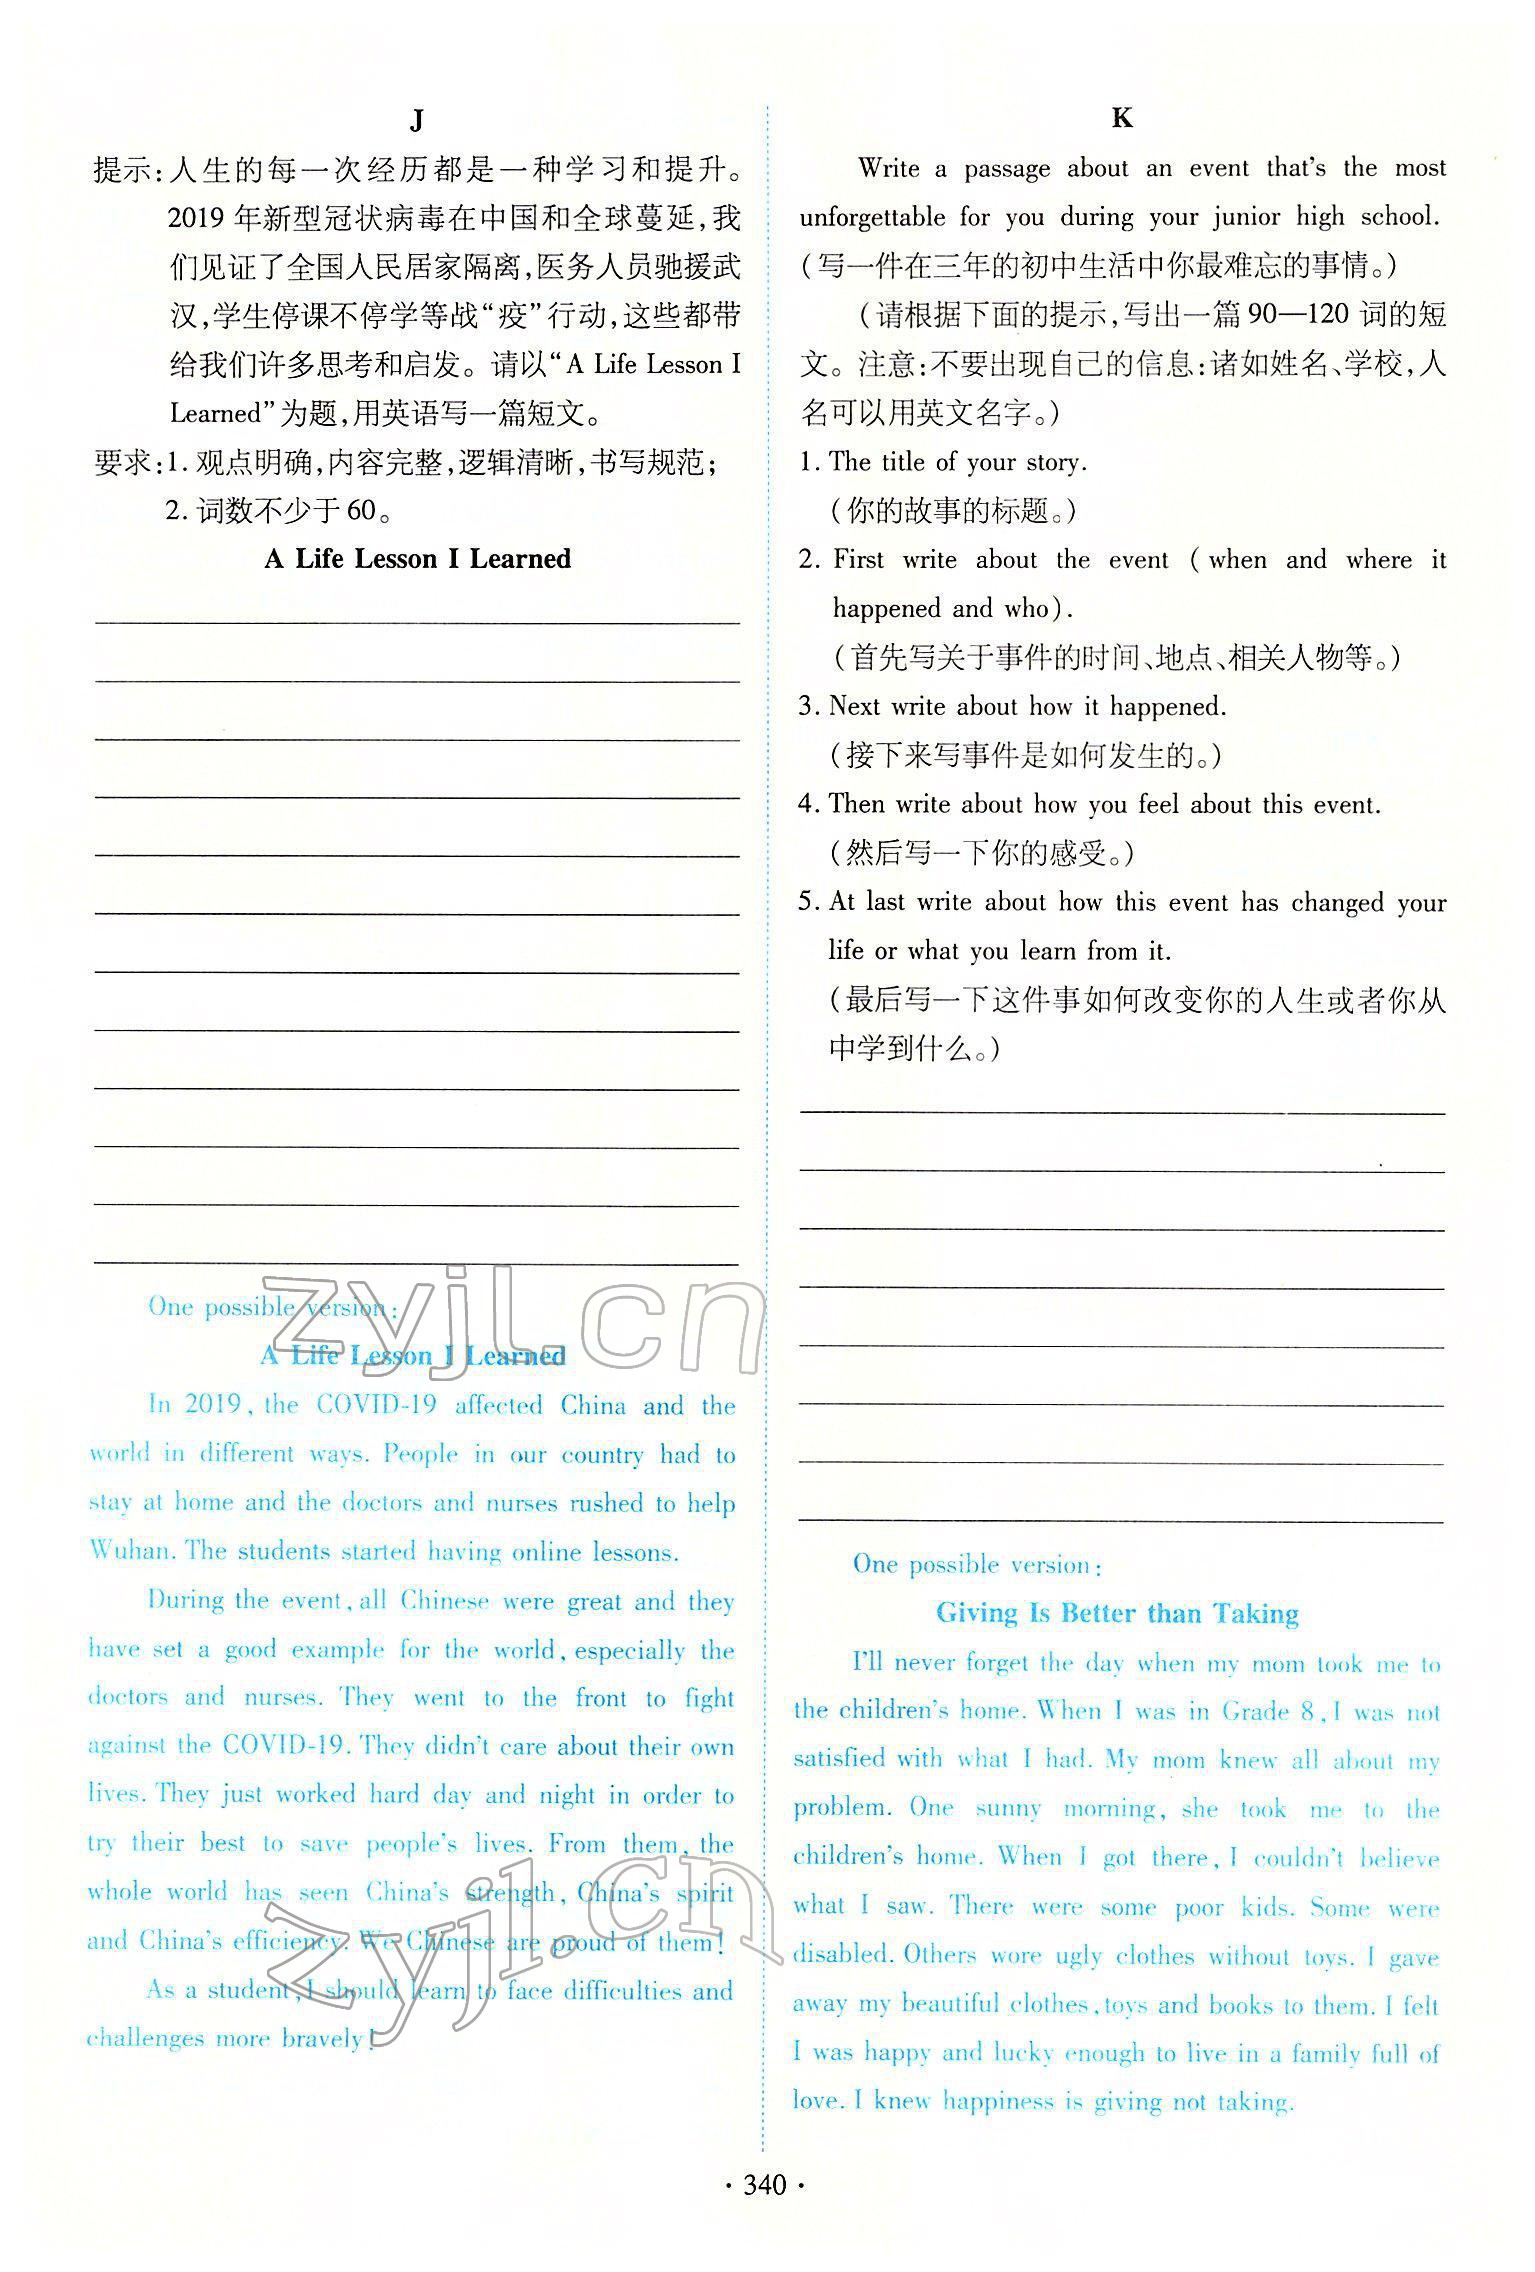 J
提示:人生的每一次经历都是一种学习和提升。
2019年新型冠状病毒在中国和全球蔓延,我
们见证了全国人民居家隔离,医务人员驰援武
汉,学生停课不停学等战“疫”行动,这些都带
给我们许多思考和启发。请以“A Life Lesson I
Learned”为题,用英语写一篇短文。
要求:1. 观点明确,内容完整,逻辑清晰,书写规范;
2. 词数不少于60。
A Life Lesson I Learned
One possible version:
A Life Lesson I Learned
In 2019, the COVID-19 affected China and the
world in different ways. People in our country had to
stay at home and the doctors and nurses rushed to help
Wuhan. The students started having online lessons.
During the event, all Chinese were great and they
have set a good example for the world, especially the
doctors and nurses. They went to the front to fight
against the COVID-19. They didn't care about their own
lives. They just worked hard day and night in order to
try their best to save people's lives. From them, the
whole world has seen China's strength, China's spirit
and China's efficiency. We Chinese are proud of them!
As a student, I should learn to face difficulties and
challenges more bravely!
K
Write a passage about an event that's the most
unforgettable for you during your junior high school.
(写一件在三年的初中生活中你最难忘的事情。)
(请根据下面的提示,写出一篇90—120词的短
文。注意:不要出现自己的信息:诸如姓名、学校,人
名可以用英文名字。)
1. The title of your story.
(你的故事的标题。)
2. First write about the event (when and where it
happened and who).
(首先写关于事件的时间、地点、相关人物等。)
3. Next write about how it happened.
(接下来写事件是如何发生的。)
4. Then write about how you feel about this event.
(然后写一下你的感受。)
5. At last write about how this event has changed your
life or what you learn from it.
(最后写一下这件事如何改变你的人生或者你从
中学到什么。)
One possible version:
Giving Is Better than Taking
I'll never forget the day when my mom took me to
the children's home. When I was in Grade 8, I was not
satisfied with what I had. My mom knew all about my
problem. One sunny morning, she took me to the
children's home. When I got there, I couldn't believe
what I saw. There were some poor kids. Some were
disabled. Others wore ugly clothes without toys. I gave
away my beautiful clothes, toys and books to them. I felt
I was happy and lucky enough to live in a family full of
love. I knew happiness is giving not taking.
zyjl.cn
zyjl.cn
· 340 ·